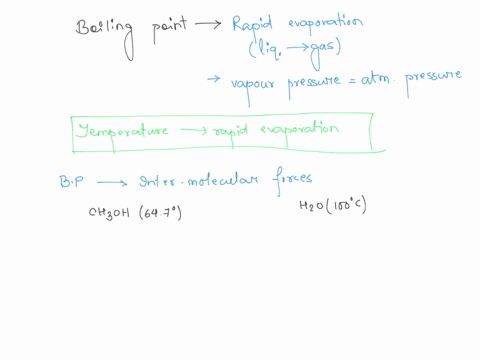 Boiling point → Rapid evaporation
(liq. → gas)
→ vapour pressure = atm. pressure
Temperature → rapid evaporation
B.P → Inter-molecular forces
CH3OH (64.7°) H2O (100°C)